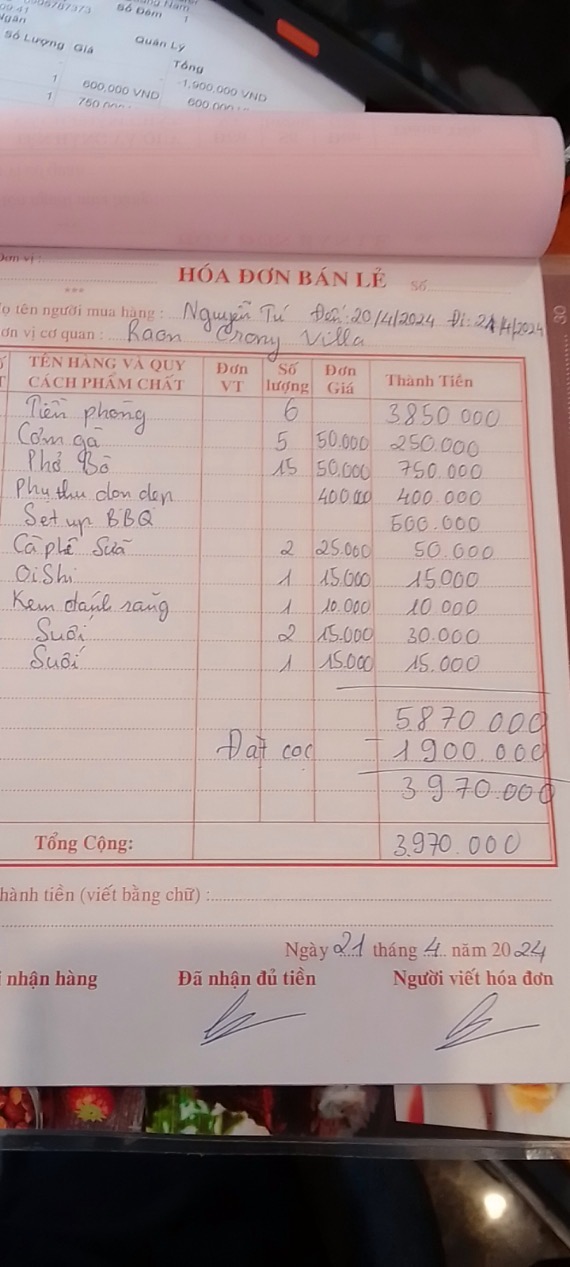 Số Đêm 1
Số Lượng Giá Quản Lý
Tổng
-1,900,000 VND
1 600,000 VND
1
HÓA ĐƠN BÁN LẺ Số
ọ tên người mua hàng : Nguyễn Tú Đến: 20/4/2024 Đi: 21/4/2024
ơn vị cơ quan : Raon Crony Villa
TÊN HÀNG VÀ QUY CÁCH PHẨM CHẤT Đơn VT Số lượng Đơn Giá Thành Tiền
Tiền phòng 6 3850 000
Cơm gà 5 50.000 250.000
Phở Bò 15 50.000 750.000
Phụ thu dọn dẹp 400.000 400.000
Set up BBQ 500.000
Cà phê Sữa 2 25.000 50.000
OiShi 1 15.000 15.000
Kem đánh răng 1 10.000 10 000
Suối 2 15.000 30.000
Suối 1 15.000 15.000
5.870 000
Đặt cọc - 1 900.000
3 970.000
Tổng Cộng: 3.970.000
hành tiền (viết bằng chữ) :
Ngày 21 tháng 4 năm 2024
nhận hàng Đã nhận đủ tiền Người viết hóa đơn